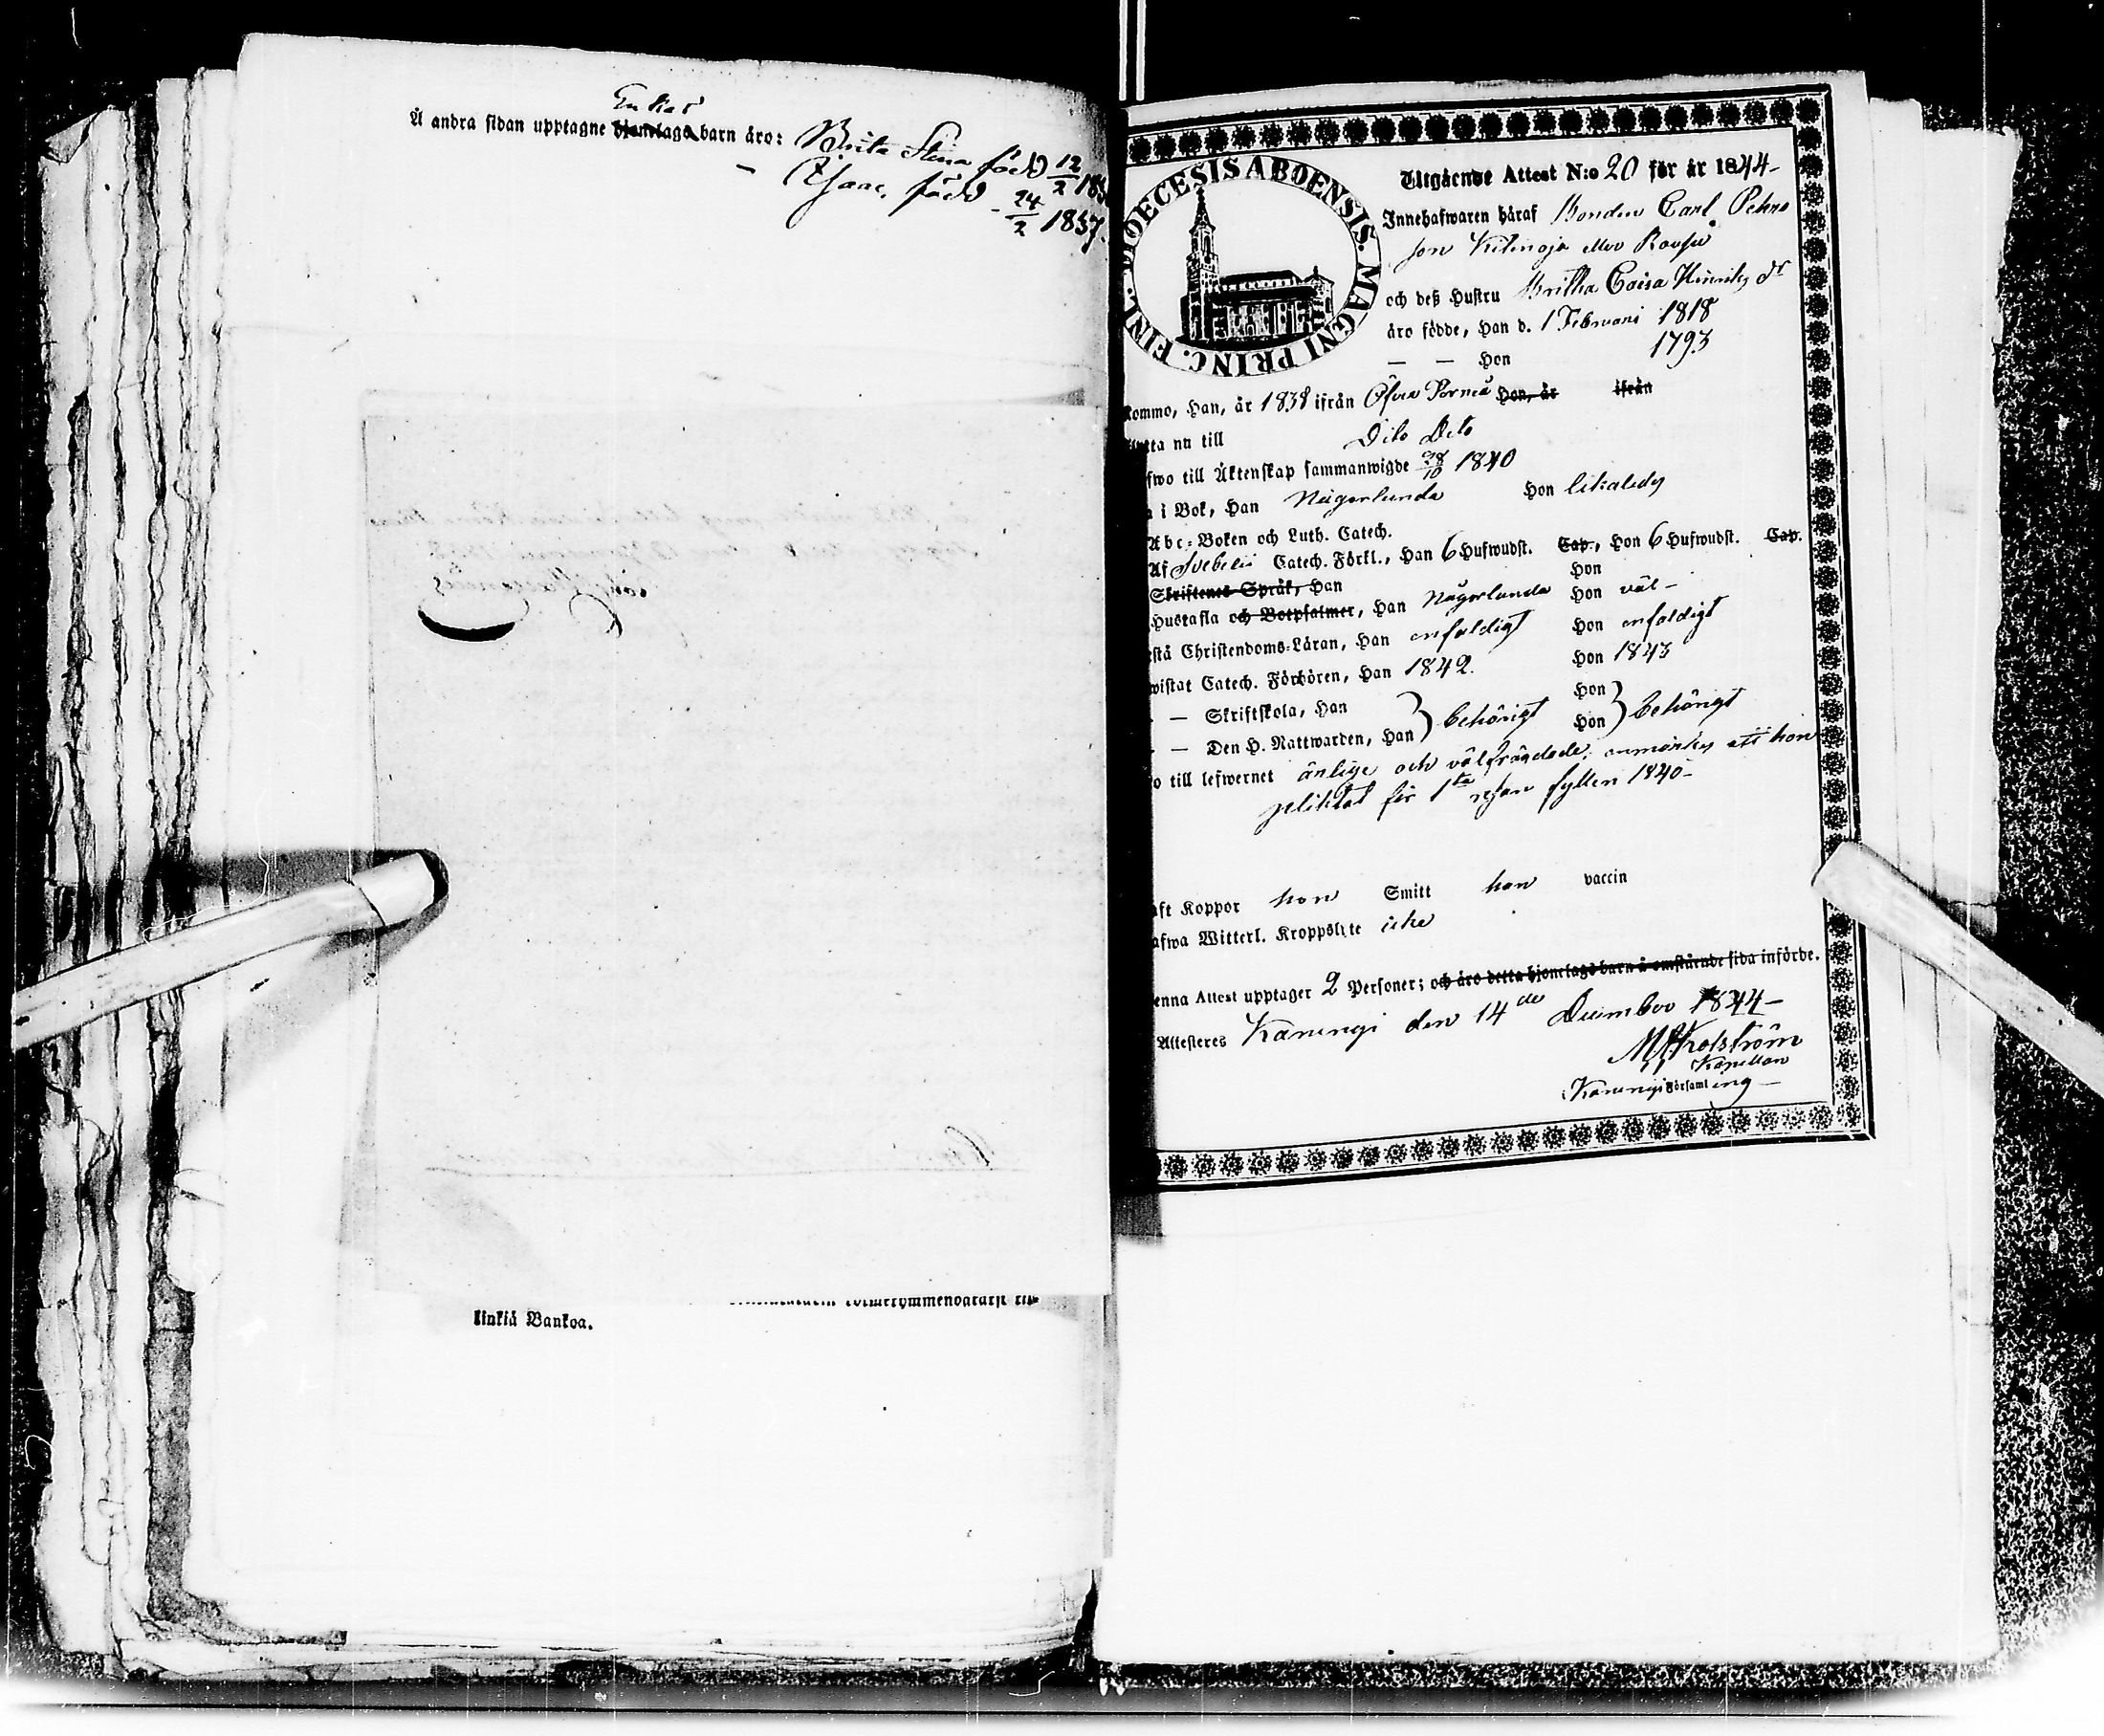 Enkas
Å andra sidan upptagne hjonelags barn äro: Brita Stena född 12/2 18
Isaac, född 24/2 1837.
kinkiä Pankoa.
DIOECESIS ABOENSIS. MAGNI PRINC. FINL.
Utgående Attest N:o 20 för år 1844-
Innehafwaren häraf Bonden Carl Pehrs
son Kitinoja eller
och deß Hustru Britha Caisa Hinriks dr
äro födde, Han d. 1 Februari 1818
— — Hon 1793
kommo, Han, år 1838 ifrån Öfver Torneå Hon, år ifrån
flytta nu till Dito Dito
fwo till Äktenskap sammanwigde 28/10 1840
i Bok, Han Någorlunda Hon likaledes
Abc-Boken och Luth. Catech.
Af Svebelii Catech. Förkl., Han 6 Hufwudst. Cap., Hon 6 Hufwudst. Cap.
Skriftenes Språk, Han Hon
Hustafla och Botpsalmer, Han Någorlunda Hon väl -
stå Christendoms-Läran, Han enfaldigt Hon enfaldigt
wistat Catech. Förhören, Han 1842. Hon 1843
— Skriftskola, Han Hon
— Den H. Nattwarden, Han } behörigt Hon } behörigt
o till lefwernet ärlige och välfrägdade; anmärkes att hon
pliktat för 1sta resan fylleri 1840-
aft Koppor hon Smitt han vaccin
afwa Witterl. Kroppslyte icke
enna Attest upptager 2 Personer; och äro detta hjonelags barn å omstående sida införde.
Attesteres Karungi den 14de December 1844-
Kapellan
Karungi Församling